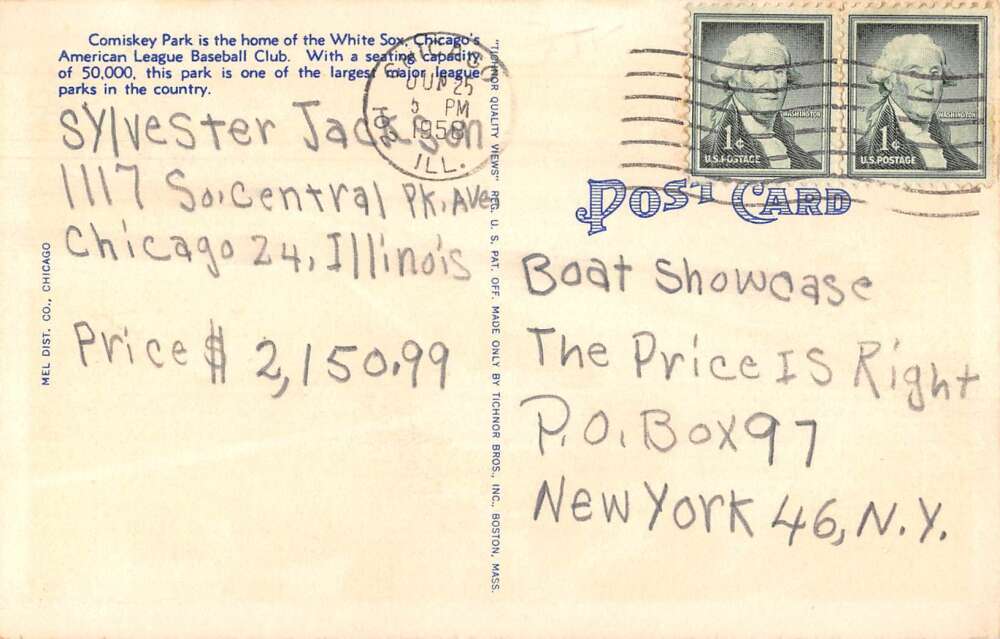 Comiskey Park is the home of the White Sox, Chicago's
American League Baseball Club. With a seating capacity
of 50,000, this park is one of the largest major league
parks in the country.
CHICAGO
JUN 25
5 PM
1958
ILL.
Sylvester Jackson
1117 So. Central Pk. Ave
Chicago 24, Illinois
Price $ 2,150.99
MEL DIST. CO., CHICAGO
"TICHNOR QUALITY VIEWS" REG. U. S. PAT. OFF. MADE ONLY BY TICHNOR BROS., INC., BOSTON, MASS.
WASHINGTON
1¢
U.S. POSTAGE
WASHINGTON
1¢
U.S. POSTAGE
POST CARD
Boat Showcase
The Price Is Right
P.O. Box 97
New York 46, N.Y.